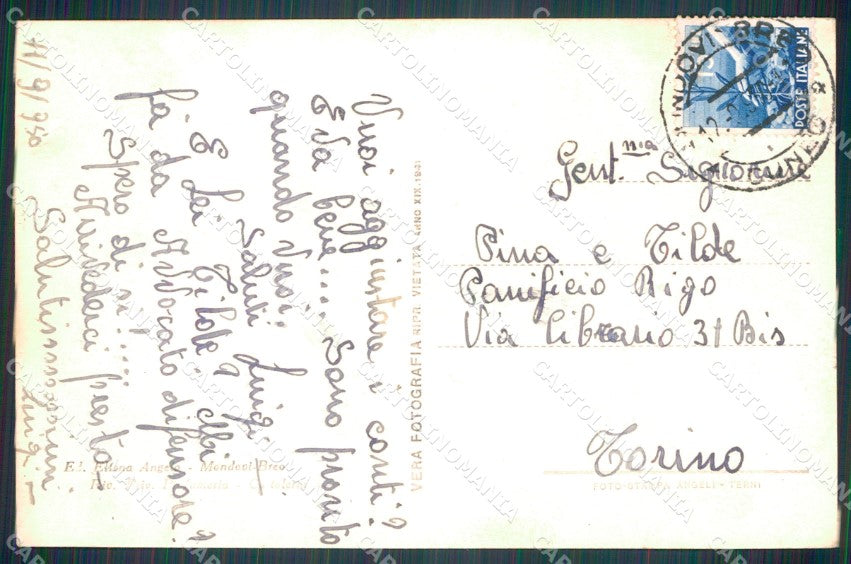 11/9/950
Vuoi aggiustare i conti?
E va bene.... Sono pronto
quando vuoi.
Saluti Luigi
E Lei Tilde? chi
fà da Avvocato difensore?
Spero di si!....
Arrivederci presto
Luigi
VERA FOTOGRAFIA RIPR. VIETATA ANNO XIX-1941
Ed. Elena - Mondovì-Breo
POSTE ITALIANE
Gent.ma Signorine
Pina e Tilde
Panificio Rigo
Via Librario 31 Bis
Torino
FOTO-STAMPA ANGELI - TERNI
CARTOLINOMANIA